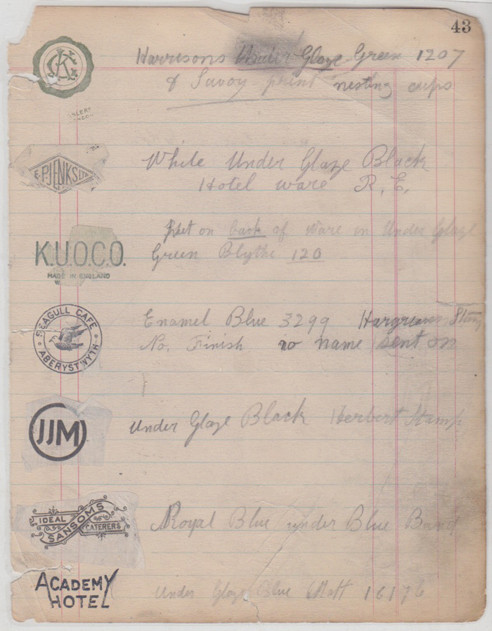 43
Harrisons Under Glaze Green 1207
& Savoy print nesting cups
E.P. JENKS LTD
White Under Glaze Black
Hotel ware R. E.
Just on back of ware in Under Glaze
K.U.O.C.O. Green Blythe 120
MADE IN ENGLAND
SEAGULL CAFE
ABERYSTWYTH
Enamel Blue 3299 Hargreaves Stamp
No. Finish no name sent on
JJM
Under Glaze Black Herbert Stamp
IDEAL
SANSOMS
CATERERS
Royal Blue under Blue Band
ACADEMY
HOTEL
Under Glaze Blue Matt 16176